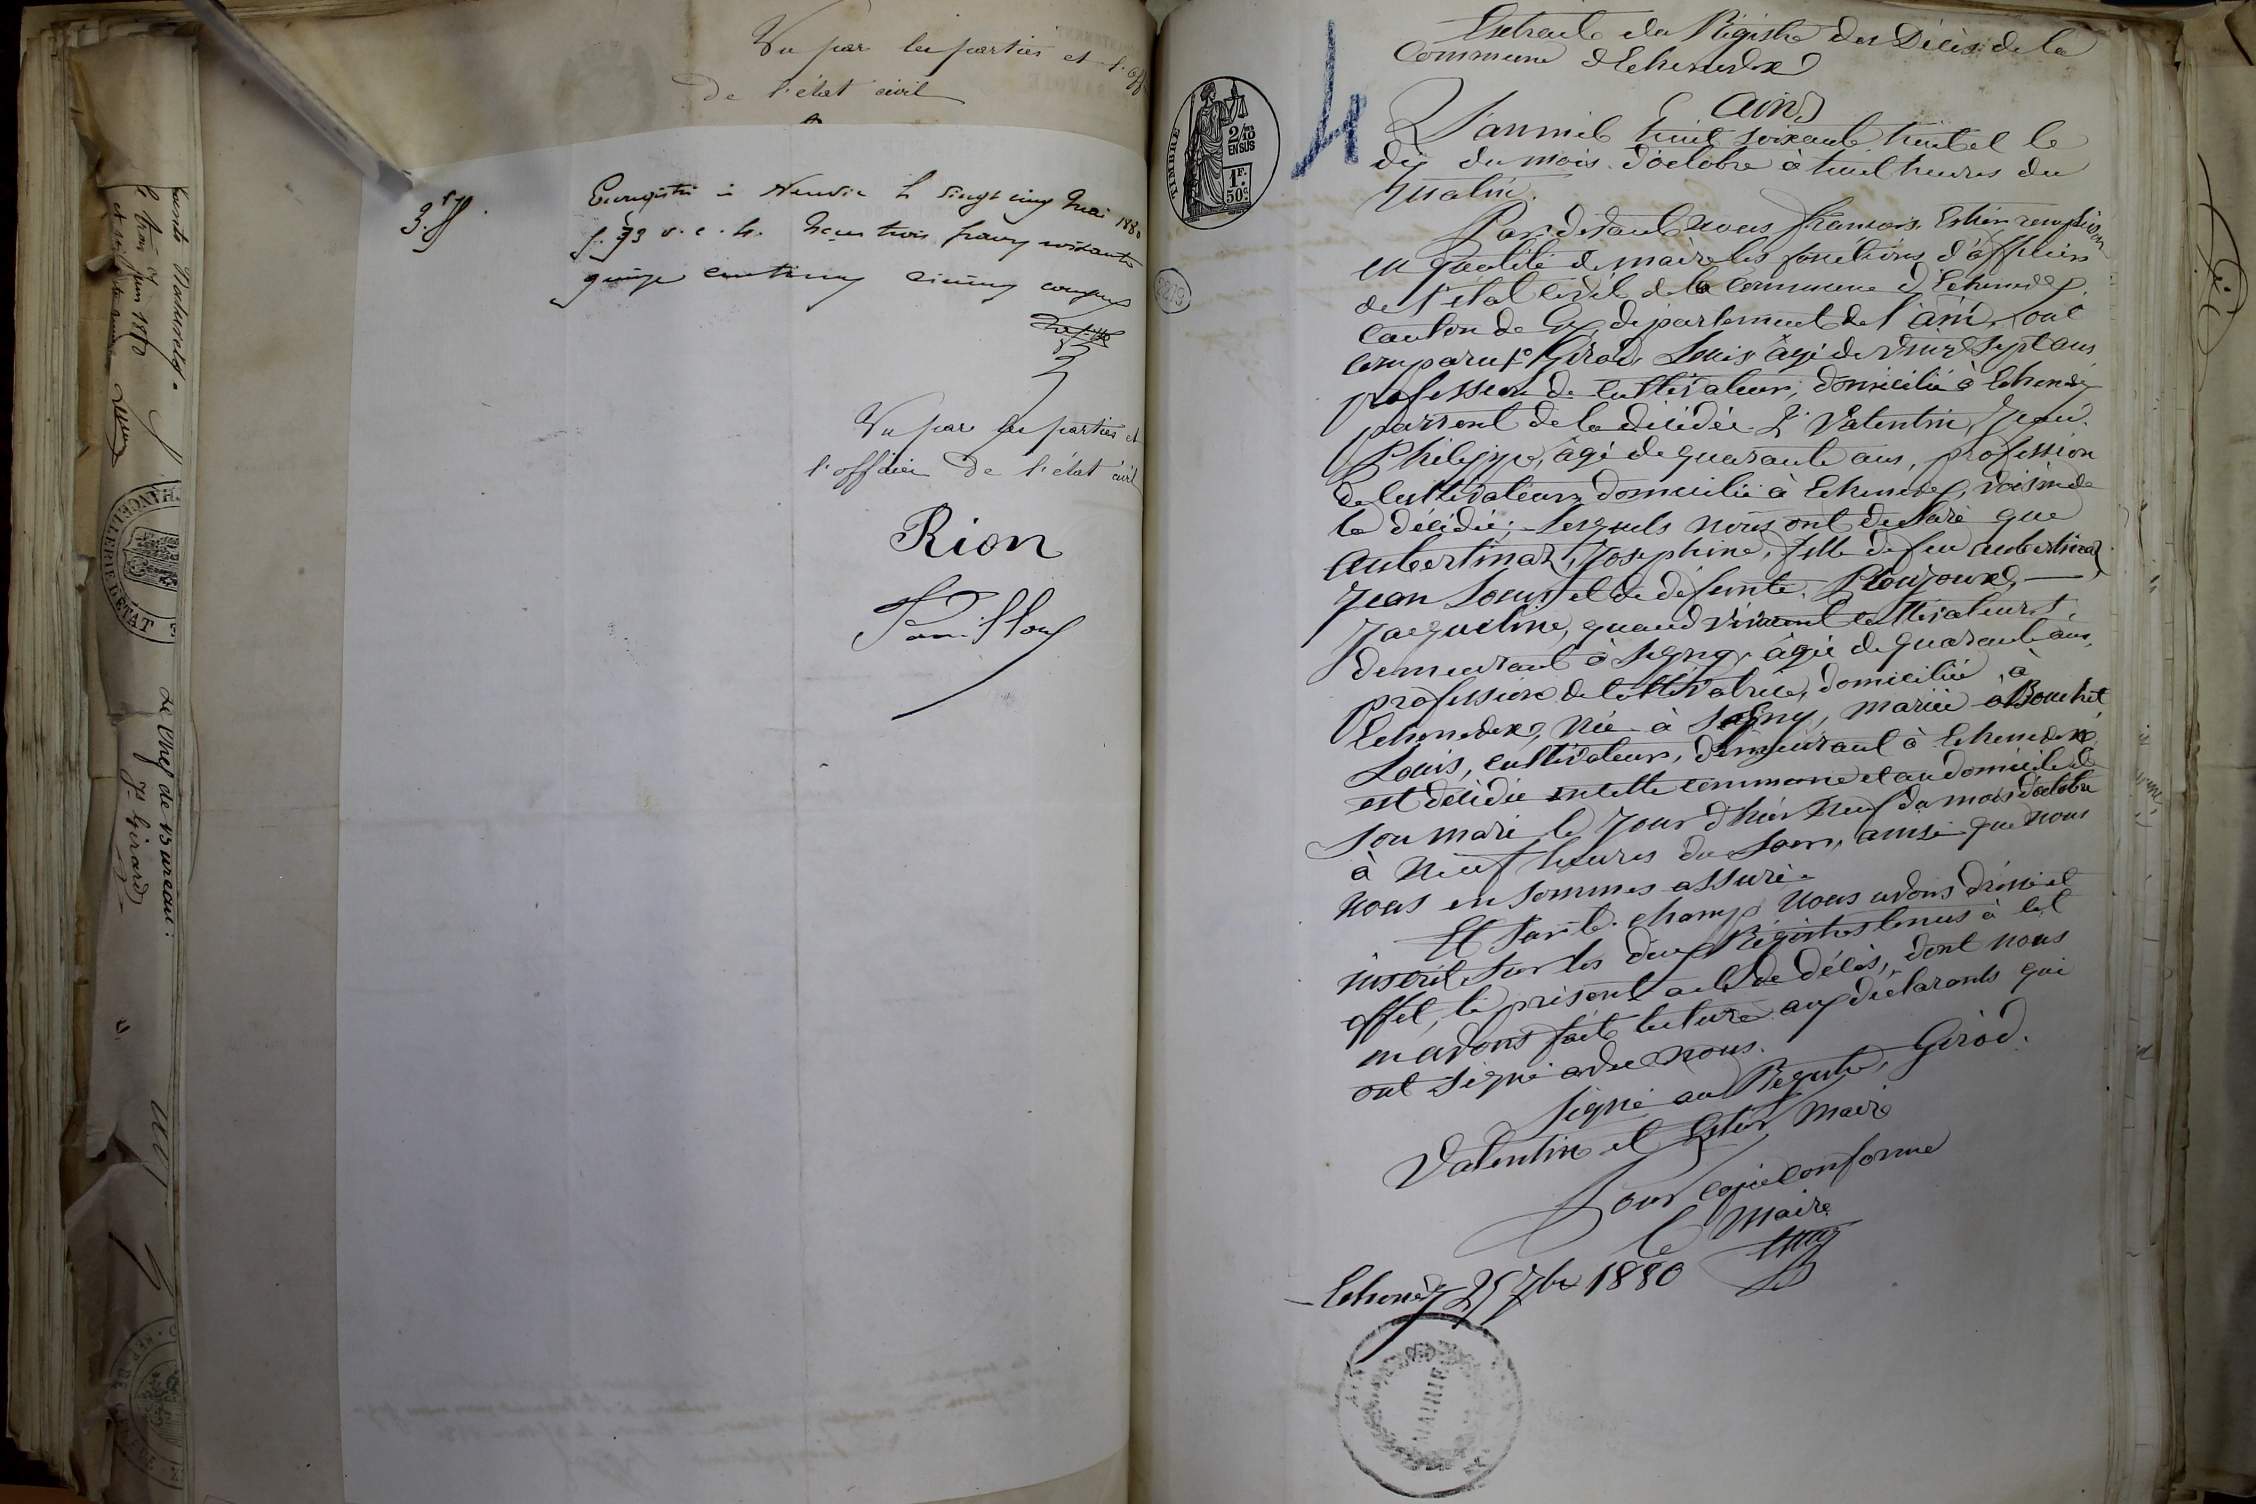 Vu par les parties et l'off
de l'état civil
3.75
Enregistré à le vingt cinq Mai 1880
f. 73 v. c. 4. Reçu trois francs soixante
quinze centimes décimes compris
Vu par les parties et
l'officier de l'état civil
Rion
Sainte
le trois Juin 1880
CHANCELLERIE D'ETAT
Le Chef de Bureau:
J. Girard
Extrait du Régistre des Décès de la
Commune d'Echenevex
Ain
TIMBRE
2/10 EN SUS
1F. 50c
4
2279
L'an mil huit soixante huit et le
dix du mois d'octobre à huit heures du
matin.
Par devant nous françois Estier remplissan
en qualité de maire les fonctions d'officier
de l'état civil de la Commune d'Echenevex
canton de Gex, département de l'ain, sont
comparu 1° Girod Louis âgé de vingt sept ans
profession de cultivateur, domicilié à Echenevex
parrent de la décédée 2° Valentin, Jean
Philippe, âgé de quarante ans, profession
de Cultivateur domicilié à Echenevex, voisin de
la décédée; Lesquels nous ont declaré que
Aubertinaz, Josephine, fille de feu aubertinaz
Jean Louis et de défunte Ploujoux,
Jacqueline, quand vivaient cultivateurs,
demeurant à Segny, âgée de quarante ans,
profession de Cultivatrice, domiciliée à
Echenevex, née à Segny, mariée à Bouchet
Louis, cultivateur, demeurant à Echenevex,
est décédée en cette commune et au domicile de
son mari le jour d'hier neuf du mois d'octobre
à neuf heures du soir, ainsi que nous
nous en sommes assuré.
Et sur le champ nous avons dréssé et
inscrit sur les deux Régistres tenus à cet
effet, le présent acte de décès, dont nous
en avons fait lecture aux déclarants qui
ont signé avec nous.
Signé au Registre, Girod.
Valentin et Estier Maire
Pour copie conforme
Le Maire
Echenevex 25 7bre 1880
MAIRIE
AIN